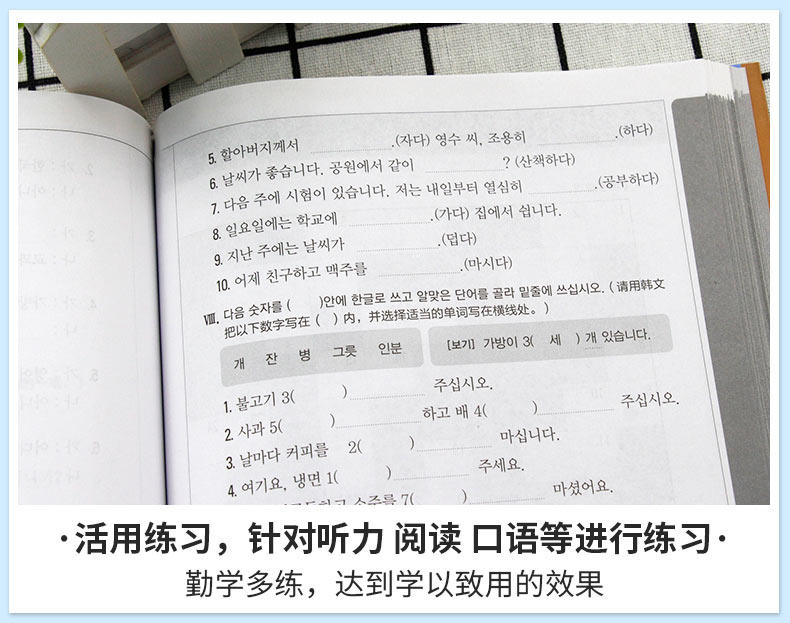 5. 할아버지께서 .(자다) 영수 씨, 조용히 .(하다)
6. 날씨가 좋습니다. 공원에서 같이 ? (산책하다)
7. 다음 주에 시험이 있습니다. 저는 내일부터 열심히 .(공부하다)
8. 일요일에는 학교에 .(가다) 집에서 쉽니다.
9. 지난 주에는 날씨가 .(덥다)
10. 어제 친구하고 맥주를 .(마시다)
Ⅷ. 다음 숫자를 ( )안에 한글로 쓰고 알맞은 단어를 골라 밑줄에 쓰십시오. (请用韩文
把以下数字写在 ( ) 内，并选择适当的单词写在横线处。)
개 잔 병 그릇 인분
[보기] 가방이 3( 세 ) 개 있습니다.
1. 불고기 3( ) 주십시오.
2. 사과 5( ) 하고 배 4( ) 주십시오.
3. 날마다 커피를 2( ) 마십니다.
4. 여기요, 냉면 1( ) 주세요.
소주를 7( ) 마셨어요.
·活用练习，针对听力 阅读 口语等进行练习·
勤学多练，达到学以致用的效果